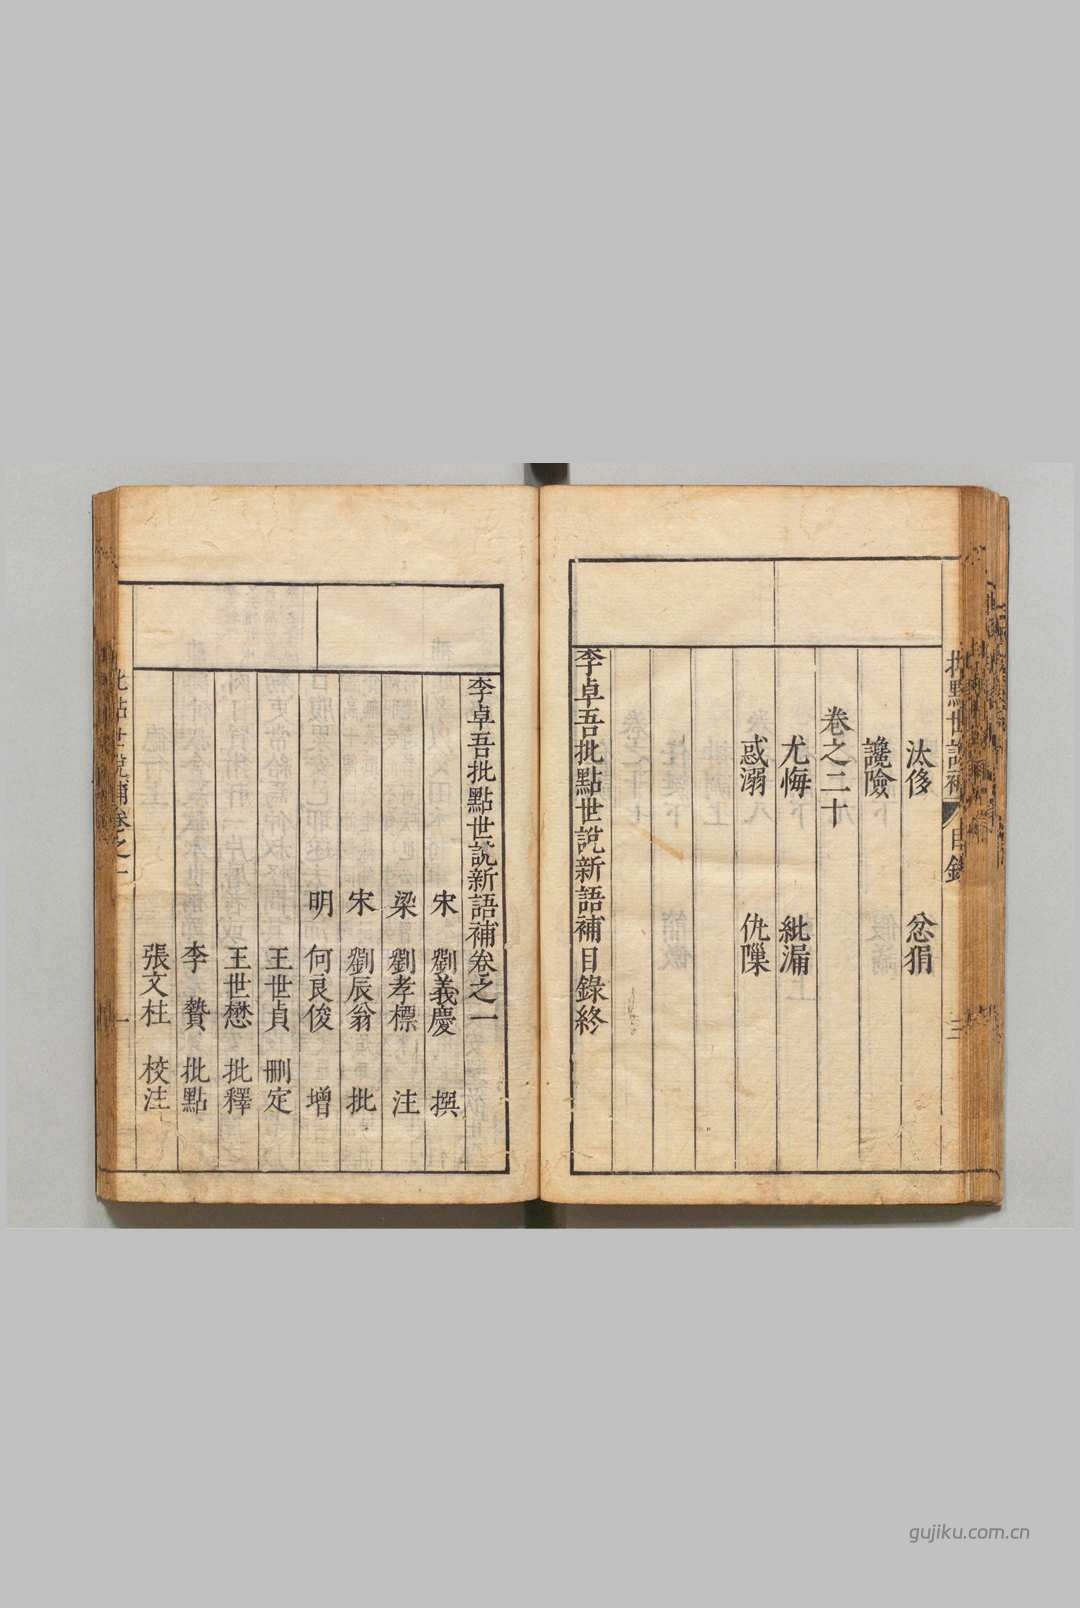 汰侈 忿狷
讒險
卷之二十
尤悔 紕漏
惑溺 仇隟
李卓吾批點世說新語補目錄終
李卓吾批點世說新語補卷之一
宋 劉義慶 撰
梁 劉孝標 注
宋 劉辰翁 批
明 何良俊 增
王世貞 刪定
王世懋 批釋
李贄 批點
張文柱 校注
批點世說補卷之一
gujiku.com.cn